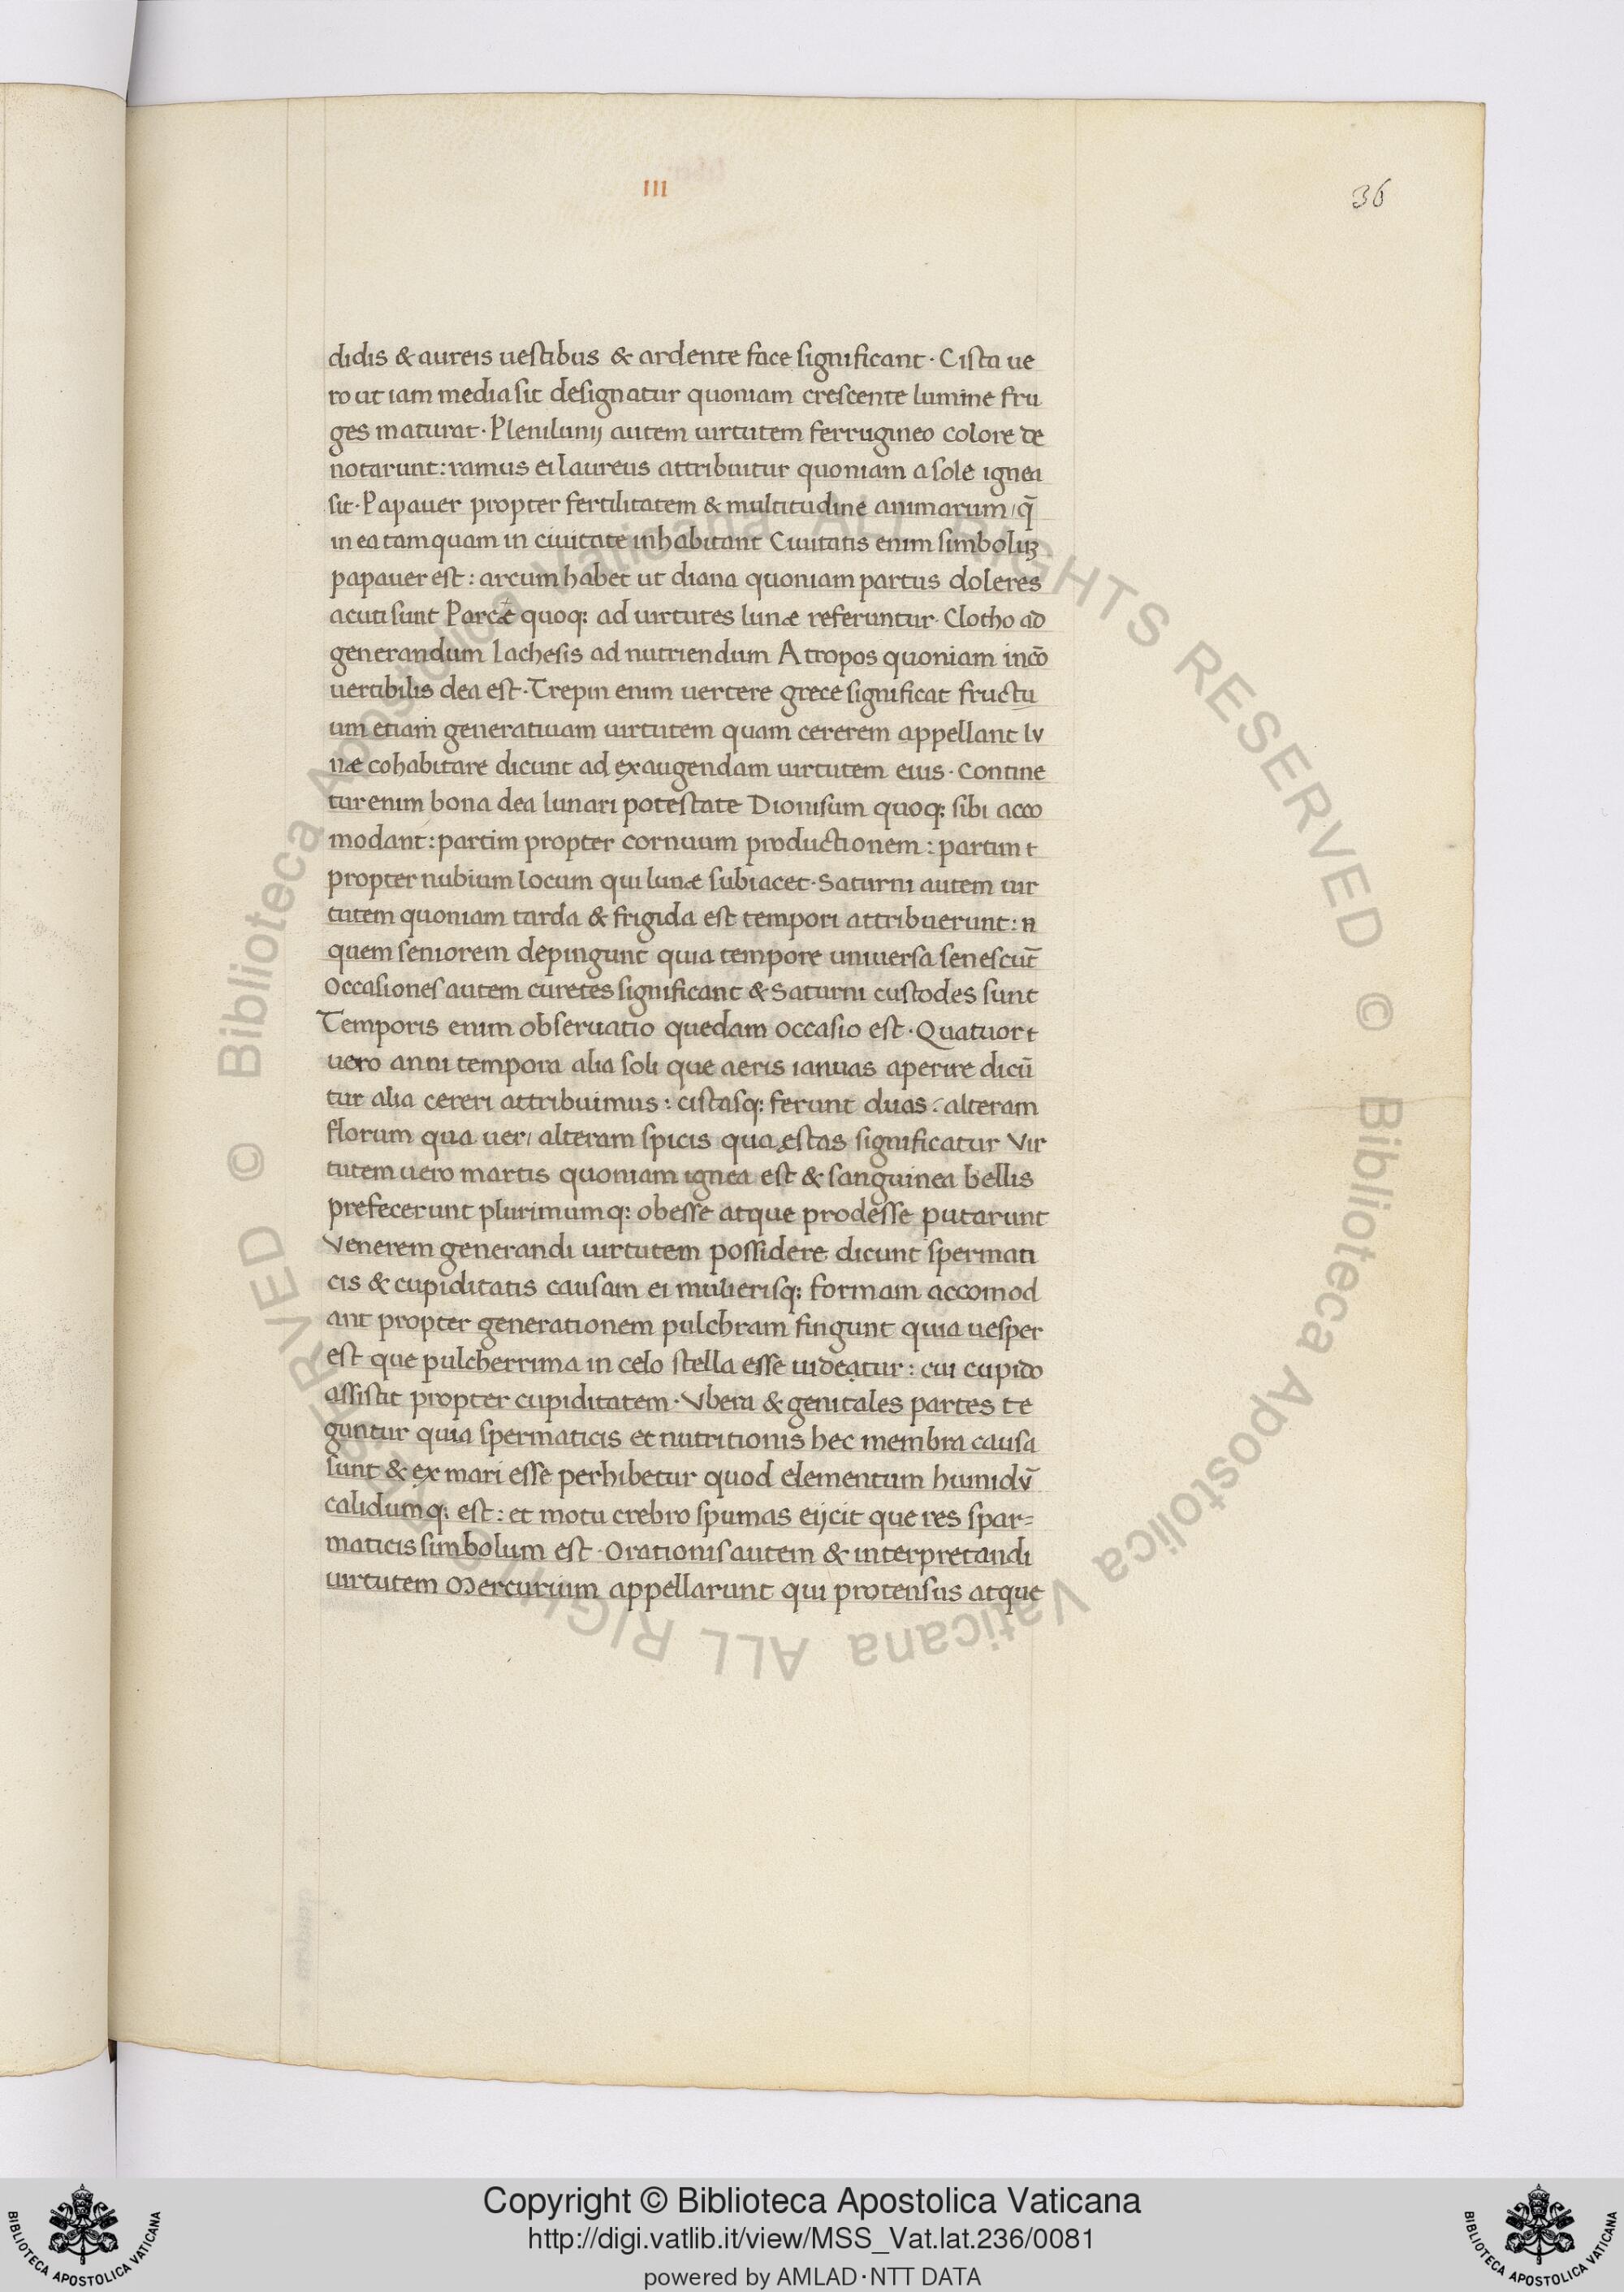 III
36
didis & aureis uestibus & ardente face significant · Cista ue
ro ut iam media sit designatur quoniam crescente lumine fru
ges maturat · Plenilunij autem uirtutem ferrugineo colore de
notarunt : ramus ei laureus attribuitur quoniam a sole ignea
sit · Papauer propter fertilitatem & multitudinē animarum / q̄
in ea tamquam in ciuitate inhabitant Ciuitatis enim simboluꝫ
papauer est : arcum habet ut diana quoniam partus doleres
acuti sunt Parcæ quoq; ad uirtutes lunæ referuntur · Clotho ad
generandum lachesis ad nutriendum Atropos quoniam incō
uertibilis dea est · Trepin enim uertere grece significat fructu
um etiam generatiuam uirtutem quam cererem appellant lv
næ cohabitare dicunt ad exaugendam uirtutem eius · Contine
tur enim bona dea lunari potestate Dionisum quoq; sibi acco
modant : partim propter cornuum productionem : partim t
propter nubium locum qui lunæ subiacet · Saturni autem uir
tutem quoniam tarda & frigida est tempori attribuerunt : n
quem seniorem depingunt quia tempore uniuersa senescūt
Occasiones autem curetes significant & Saturni custodes sunt
Temporis enim obseruatio quedam occasio est · Quatuor t
uero anni tempora alia soli que aeris ianuas aperire dicū
tur alia cereri attribuimus : cistasq; ferunt duas : alteram
florum qua uer / alteram spicis qua æstas significatur Vir
tutem uero martis quoniam ignea est & sanguinea bellis
prefecerunt plurimumq; obesse atque prodesse putarunt
Venerem generandi uirtutem possidere dicunt spermati
cis & cupiditatis causam ei mulierisq; formam accomod
ant propter generationem pulchram fingunt quia uesper
est que pulcherrima in celo stella esse uideatur : cui cupido
assistit propter cupiditatem · Vbera & genitales partes te
guntur quia spermaticis et nutritionis hec membra causa
sunt & ex mari esse perhibetur quod elementum humidv̄
calidumq; est : et motu crebro spumas eijcit que res spar=
maticis simbolum est · Orationis autem & interpretandi
uirtutem Mercurium appellarunt qui protensus atque
© Biblioteca Apostolica Vaticana ALL RIGHTS RESERVED
© Biblioteca Apostolica Vaticana ALL RIGHTS RESERVED
Copyright © Biblioteca Apostolica Vaticana
http://digi.vatlib.it/view/MSS_Vat.lat.236/0081
powered by AMLAD·NTT DATA
BIBLIOTECA APOSTOLICA VATICANA
BIBLIOTECA APOSTOLICA VATICANA